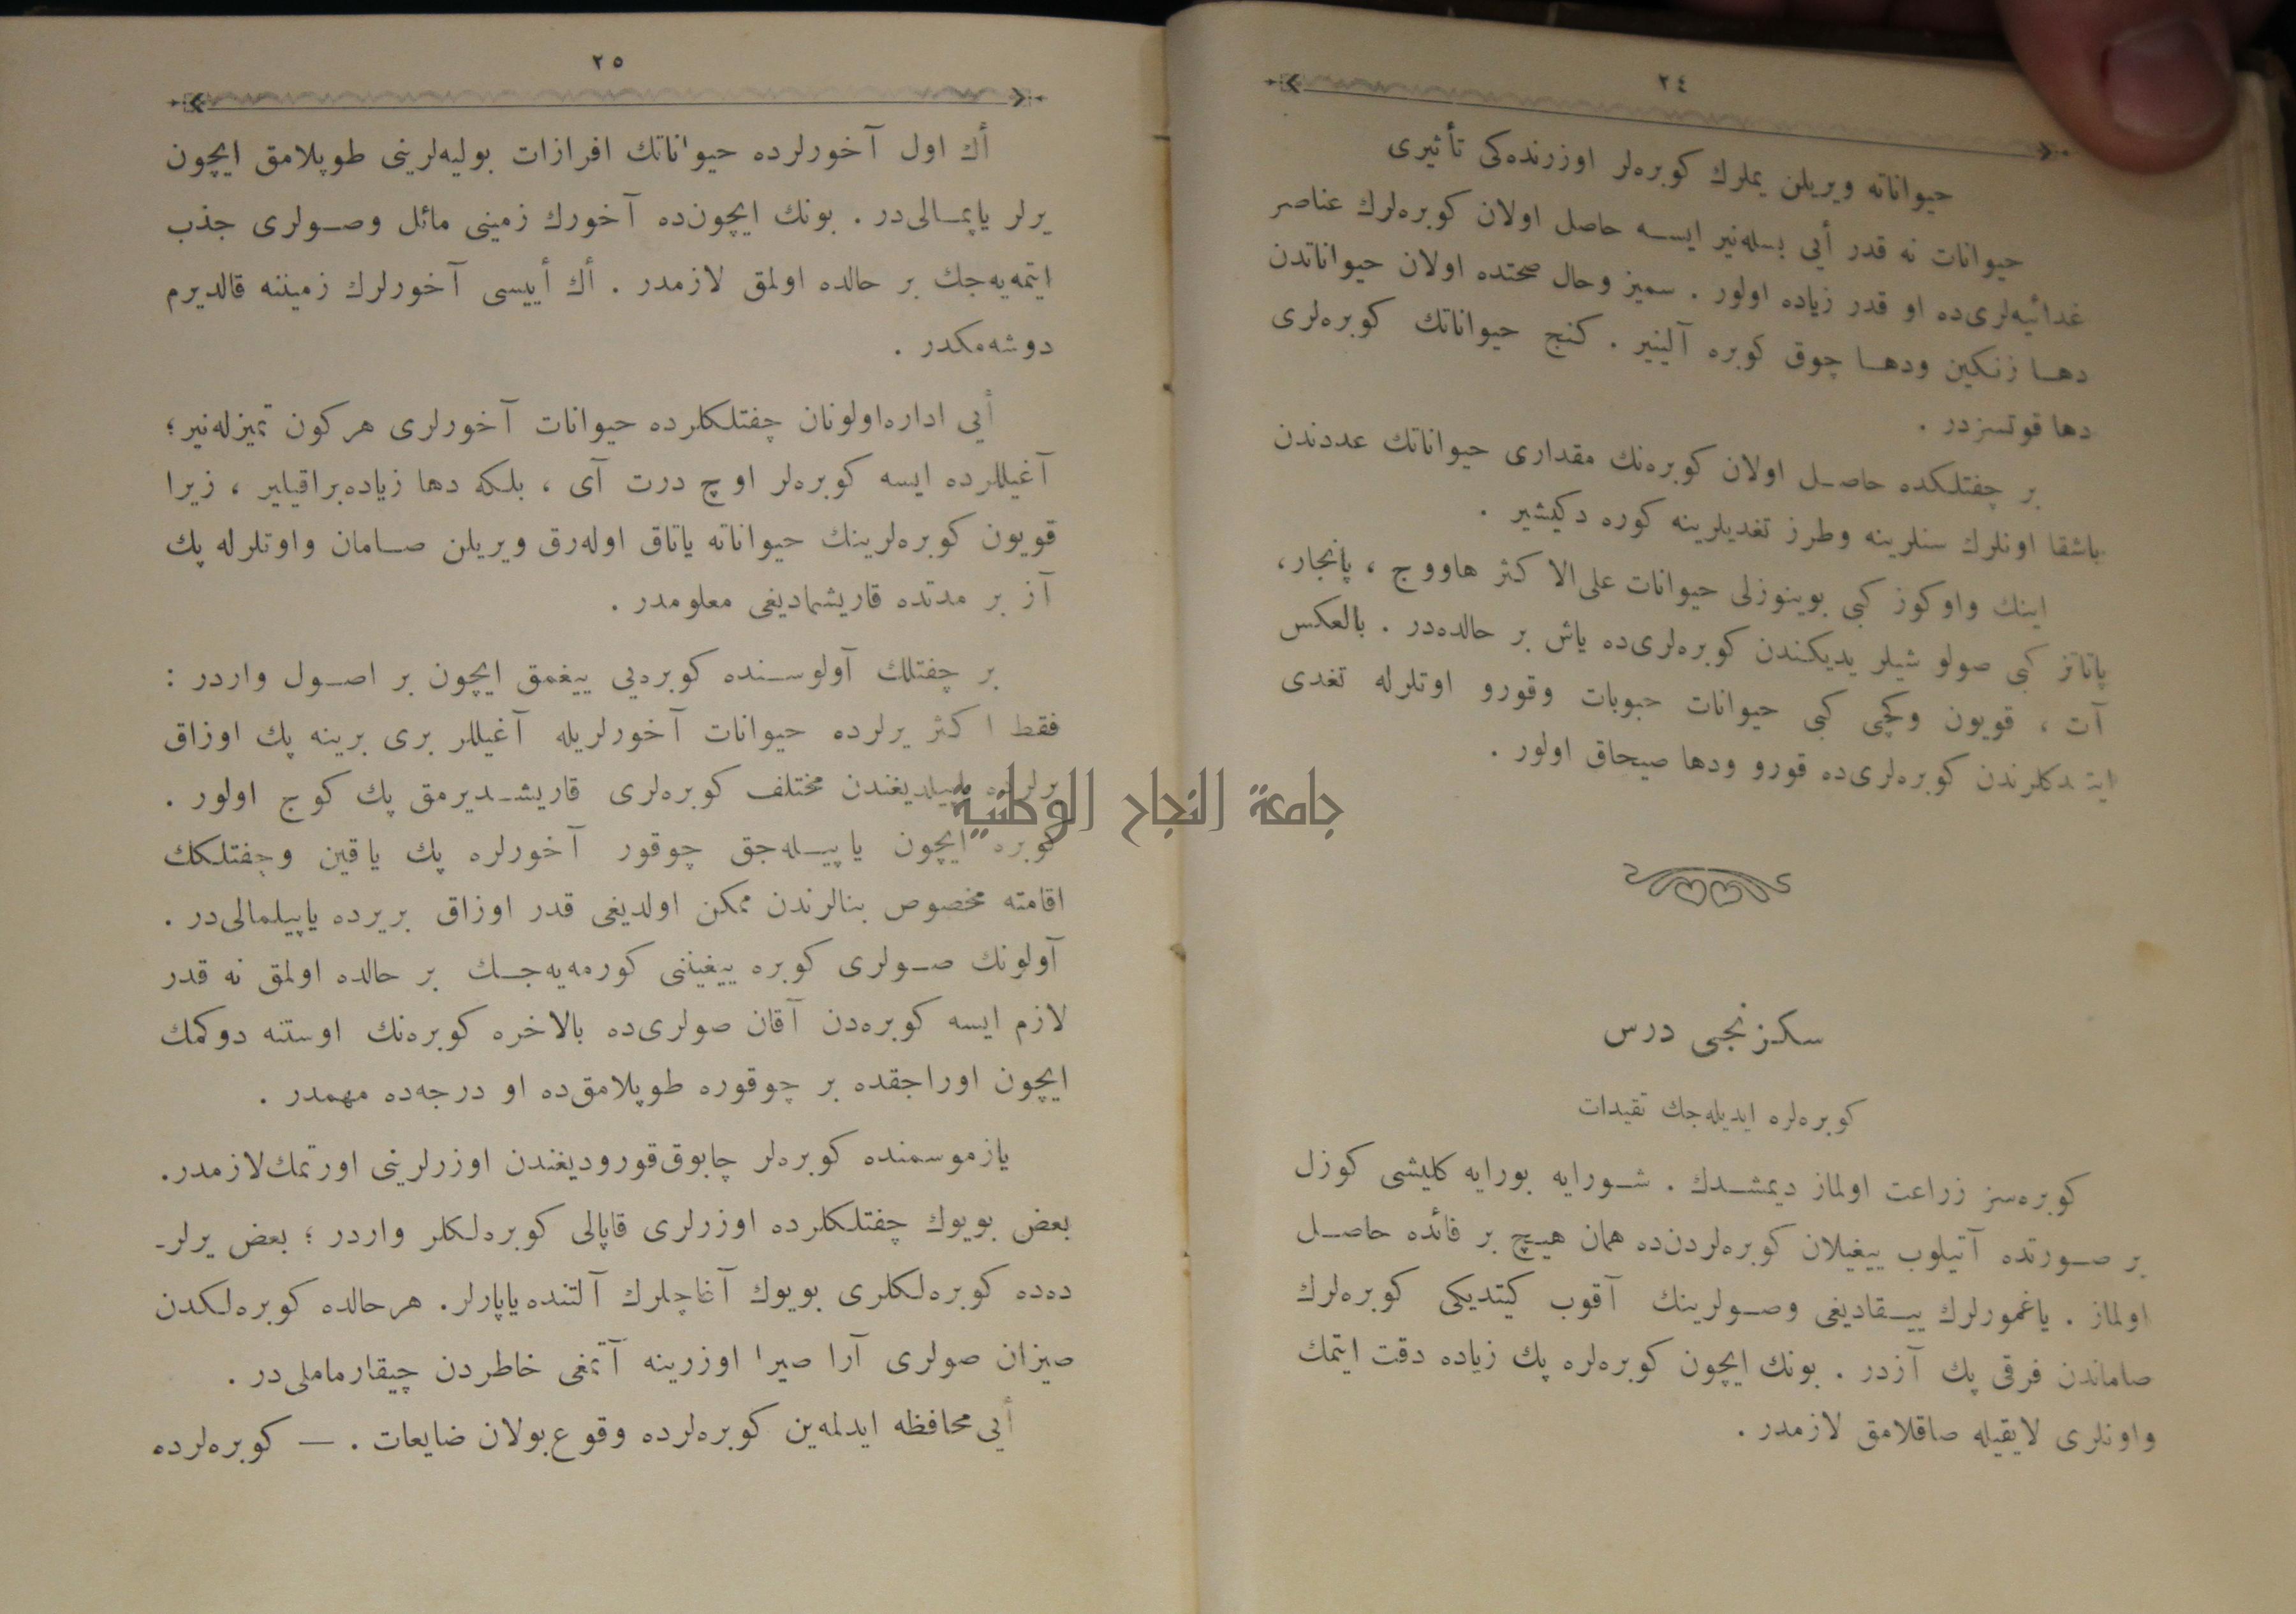 ٢٤
حيواناته ويريلن يملرك كوبره‌لر اوزرنده‌كى تأثيرى
حيوانات نه قدر أيى بسله‌نير ايسه حاصل اولان كوبره‌لرك عناصر
غدائيه‌لرى‌ده او قدر زياده اولور . سميز وحال صحتده اولان حيواناتدن
دها زنكين ودها چوق كوبره آلينير . كنج حيواناتك كوبره‌لرى
دها قوتسزدر .
بر چفتلكده حاصل اولان كوبره‌نك مقدارى حيواناتك عددندن
باشقا اونلرك سنلرينه وطرز تغديلرينه كوره دكيشير .
اينك واوكوز كبى بوينوزلى حيوانات على‌الاكثر هاووج ، پانجار،
پاتاتز كبى صولو شيلر يديكندن كوبره‌لرى‌ده ياش بر حالده‌در . بالعكس
آت ، قويون وكچى كبى حيوانات حبوبات وقورو اوتلرله تغدى
ايتدكلرندن كوبره‌لرى‌ده قورو ودها صيجاق اولور .
سكزنجى درس
كوبره‌لره ايديله‌جك تقيدات
كوبره‌سز زراعت اولماز ديمشدك . شورايه بورايه كليشى كوزل
بر صورتده آتيلوب ييغيلان كوبره‌لردن‌ده همان هيچ بر فائده حاصل
اولماز . ياغمورلرك ييقاديغى وصولرينك آقوب كيتديكى كوبره‌لرك
صاماندن فرقى پك آزدر . بونك ايچون كوبره‌لره پك زياده دقت ايتمك
واونلرى لايقيله صاقلامق لازمدر .
٢٥
أك اول آخورلرده حيواناتك افرازات بوليه‌لرينى طوپلامق ايچون
يرلر ياپمالى‌در . بونك ايچون‌ده آخورك زمينى مائل وصولرى جذب
ايتمه‌يه‌جك بر حالده اولمق لازمدر . أك أييسى آخورلرك زميننه قالديرم
دوشه‌مكدر .
أيى اداره‌اولونان چفتلكلرده حيوانات آخورلرى هركون تميزله‌نير؛
آغيللرده ايسه كوبره‌لر اوچ درت آى ، بلكه دها زياده‌براقيلير ، زيرا
قويون كوبره‌لرينك حيواناته ياتاق اوله‌رق ويريلن صامان واوتلرله پك
آز بر مدتده قاريشماديغى معلومدر .
بر چفتلك آولوسنده كوبره‌يى ييغمق ايچون بر اصول واردر :
فقط اكثر يرلرده حيوانات آخورلريله آغيللر برى برينه پك اوزاق
يرلرده ياپيلديغندن مختلف كوبره‌لرى قاريشديرمق پك كوج اولور .
كوبره ايچون ياپيله‌جق چوقور آخورلره پك ياقين وچفتلكك
اقامته مخصوص بنالرندن ممكن اولديغى قدر اوزاق بريرده ياپيلمالى‌در .
آولونك صولرى كوبره ييغيننى كورمه‌يه‌جك بر حالده اولمق نه قدر
لازم ايسه كوبره‌دن آقان صولرى‌ده بالاخره كوبره‌نك اوستنه دوكمك
ايچون اوراجقده بر چوقوره طوپلامق‌ده او درجه‌ده مهمدر .
يازموسمنده كوبره‌لر چابوق‌قوروديغندن اوزرلرينى اورتمك‌لازمدر.
بعض بويوك چفتلكلرده اوزرلرى قاپالى كوبره‌لكلر واردر ؛ بعض يرلر-
ده‌ده كوبره‌لكلرى بويوك آغاچلرك آلتنده‌ياپارلر. هرحالده كوبره‌لكدن
صيزان صولرى آرا صيرا اوزرينه آتمغى خاطردن چيقارماملى‌در .
أيى‌محافظه ايدلمه‌ين كوبره‌لرده وقوع‌بولان ضايعات . — كوبره‌لرده
جامعة النجاح الوطنية